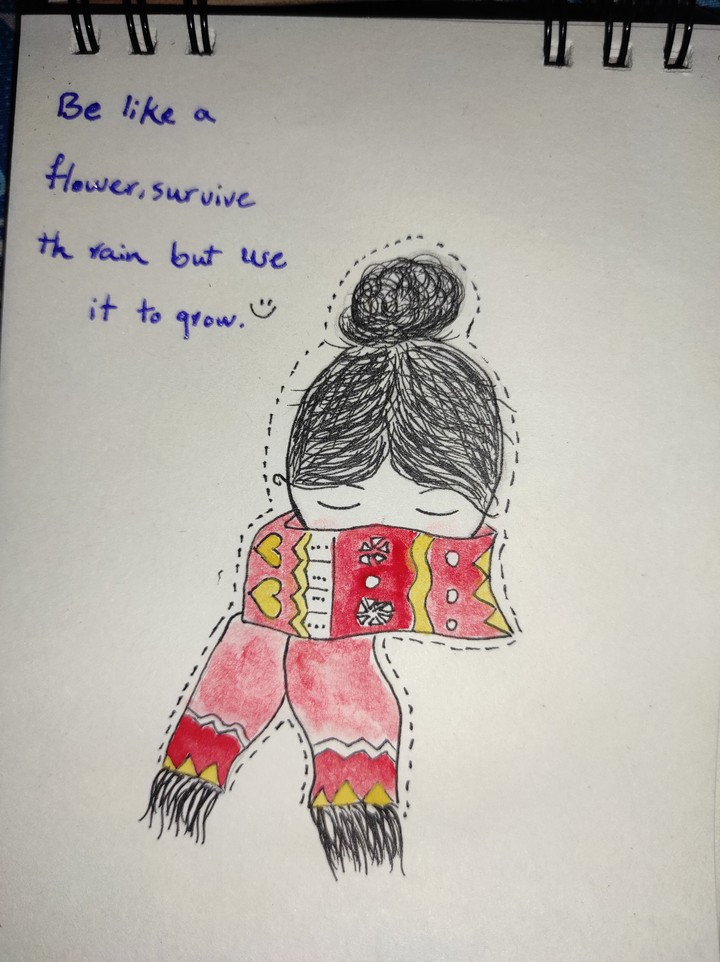 Be like a
flower, survive
th rain but use
it to grow.